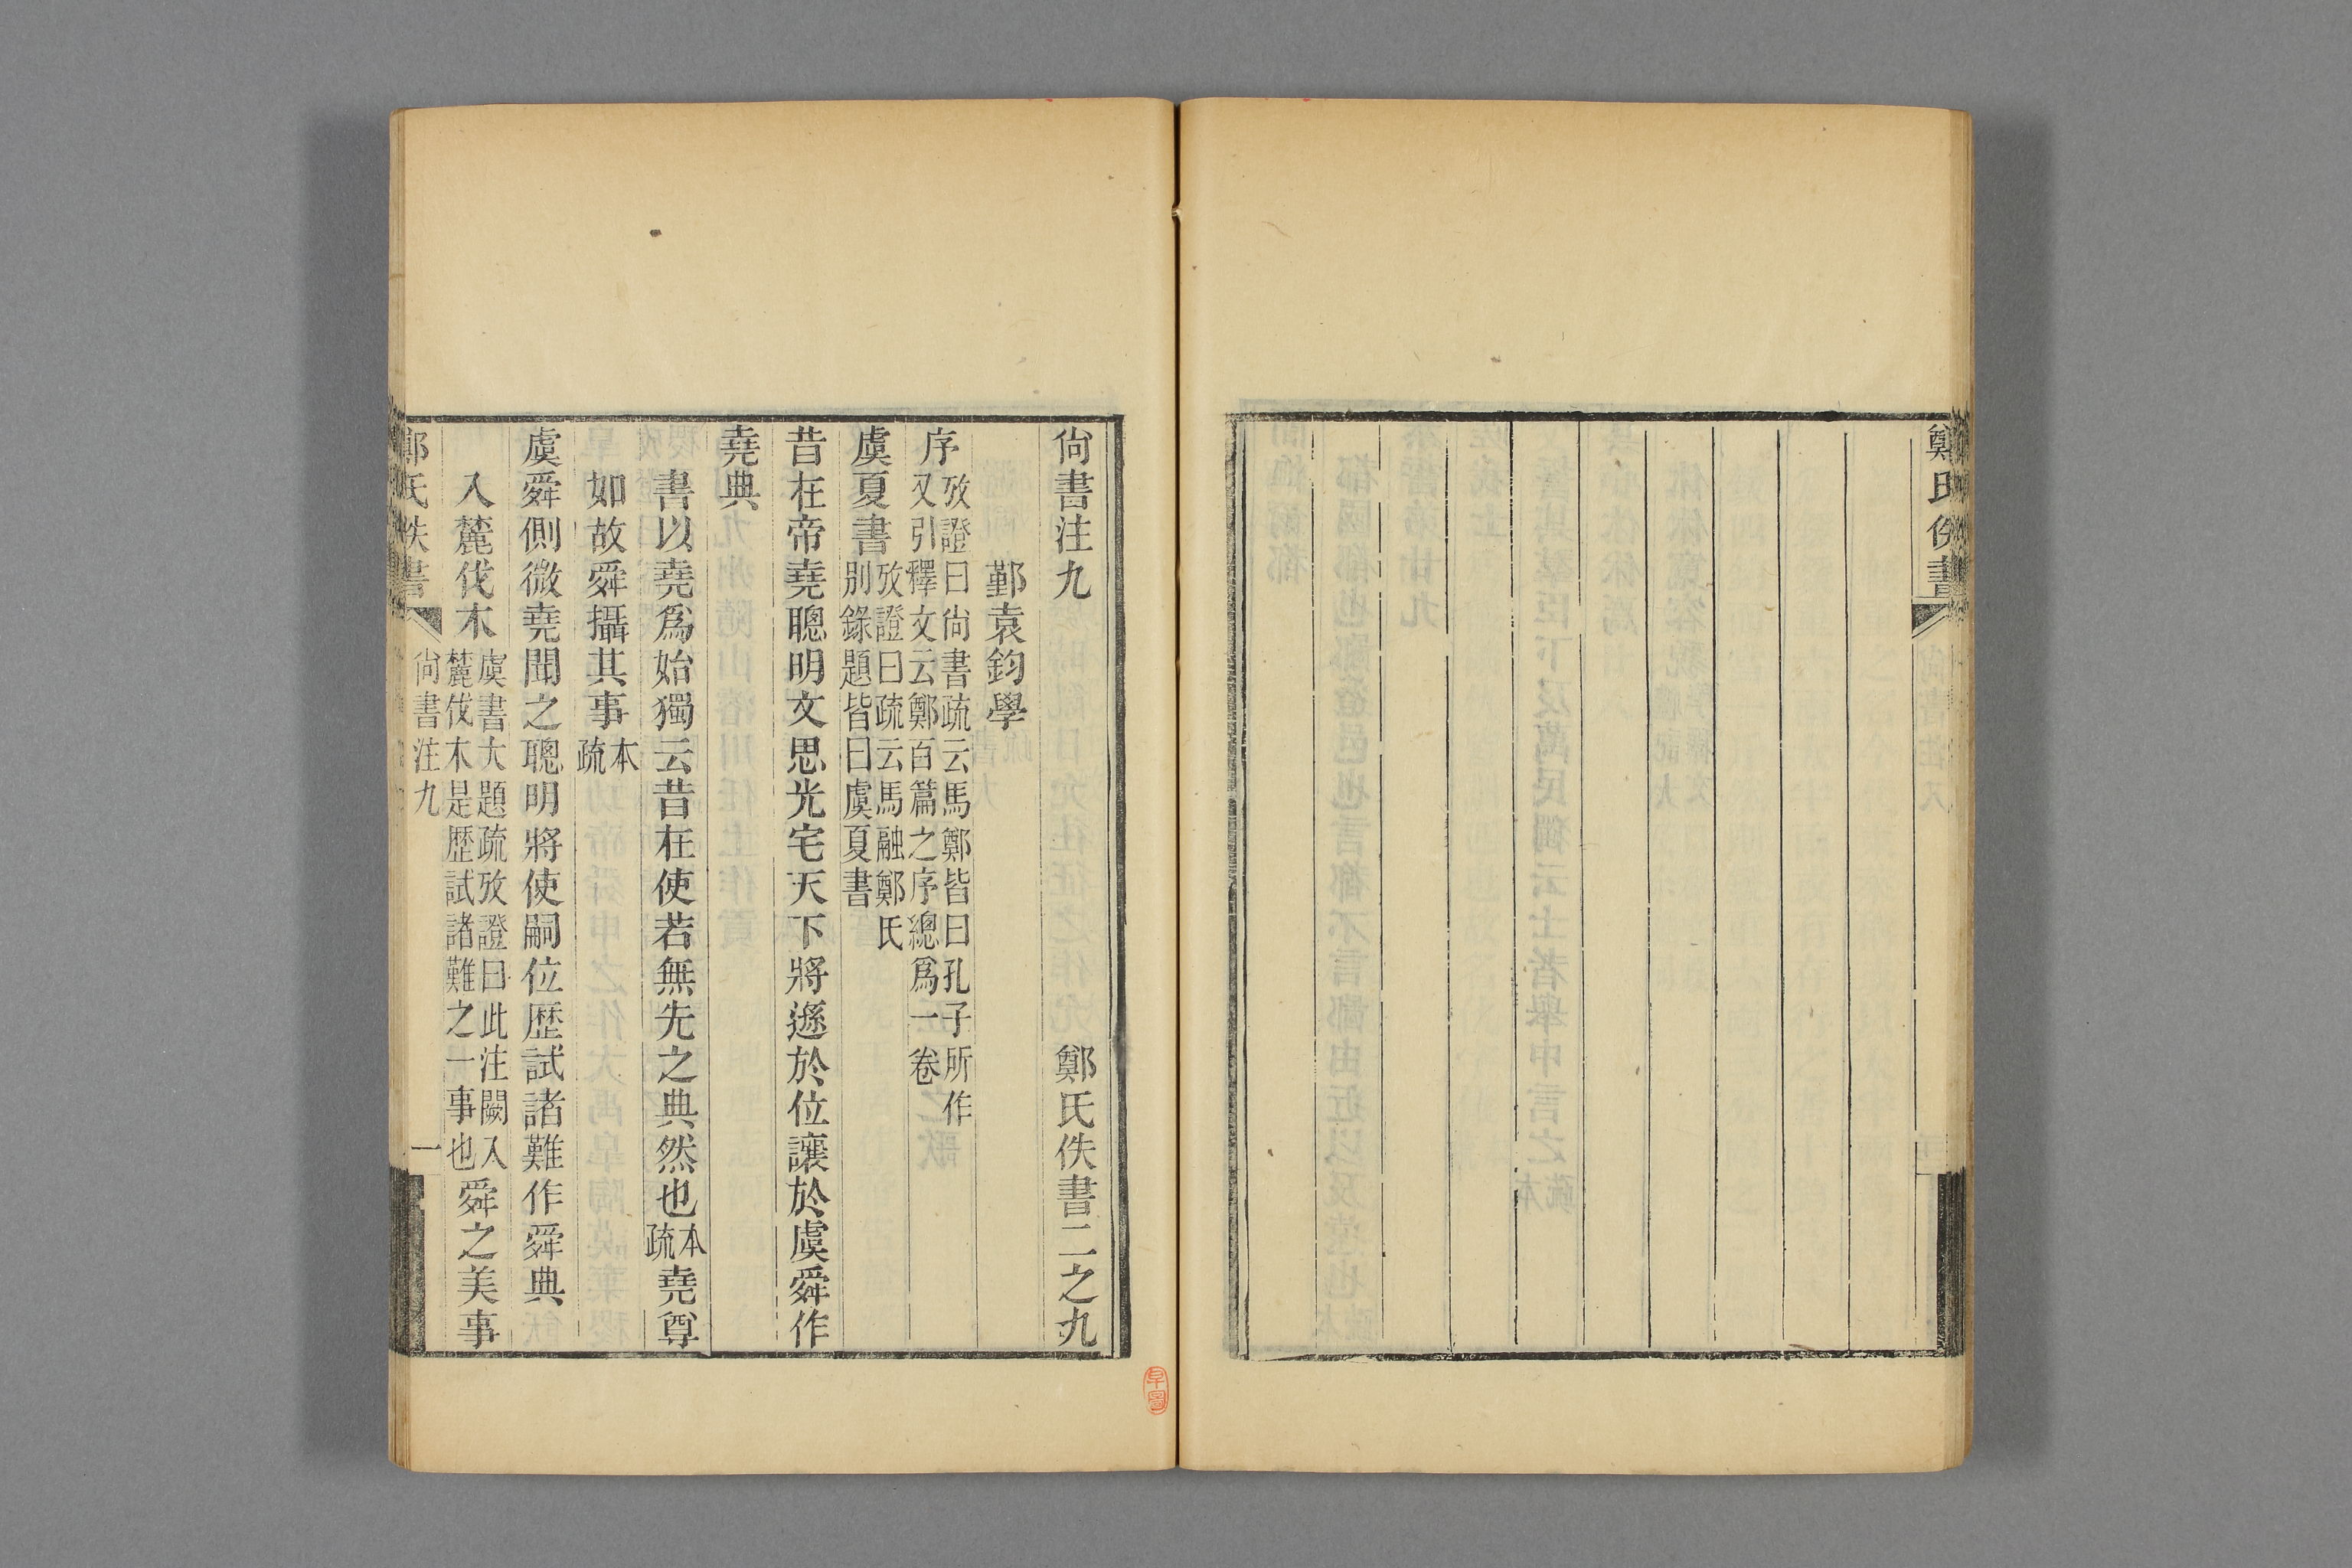 鄭氏佚書
尙書注九　鄭氏佚書二之九
鄞袁鈞學
序攷證曰尙書疏云馬鄭皆曰孔子所作
又引釋文云鄭百篇之序總爲一卷
虞夏書攷證曰疏云馬融鄭氏
別錄題皆曰虞夏書
昔在帝堯聰明文思光宅天下將遜於位讓於虞舜作
堯典
書以堯爲始獨云昔在使若無先之典然也本疏堯尊
如故舜攝其事本疏
虞舜側微堯聞之聰明將使嗣位歷試諸難作舜典
入麓伐木虞書大題疏攷證曰此注闕入
麓伐木是歷試諸難之一事也舜之美事
鄭氏佚書
尙書注九
一